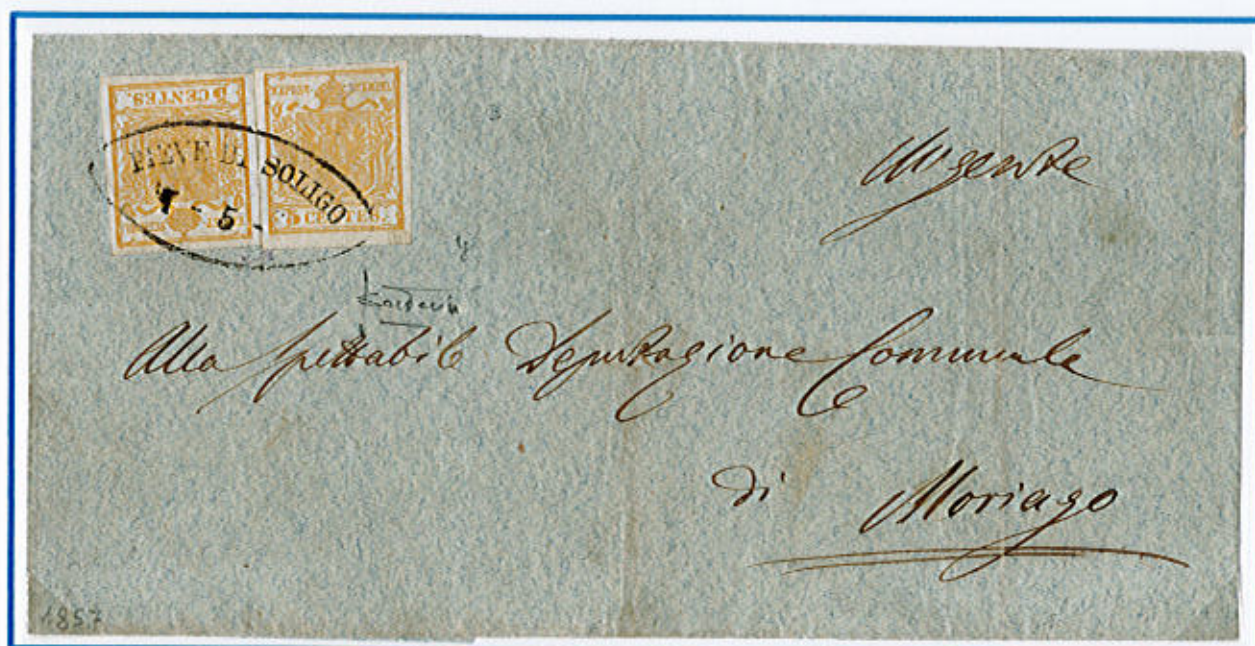 5 CENTES.
5 CENTES.
PIEVE DI SOLIGO
5
Urgente
Alla Spettabile Deputazione Comunale
di
Moriago
1857